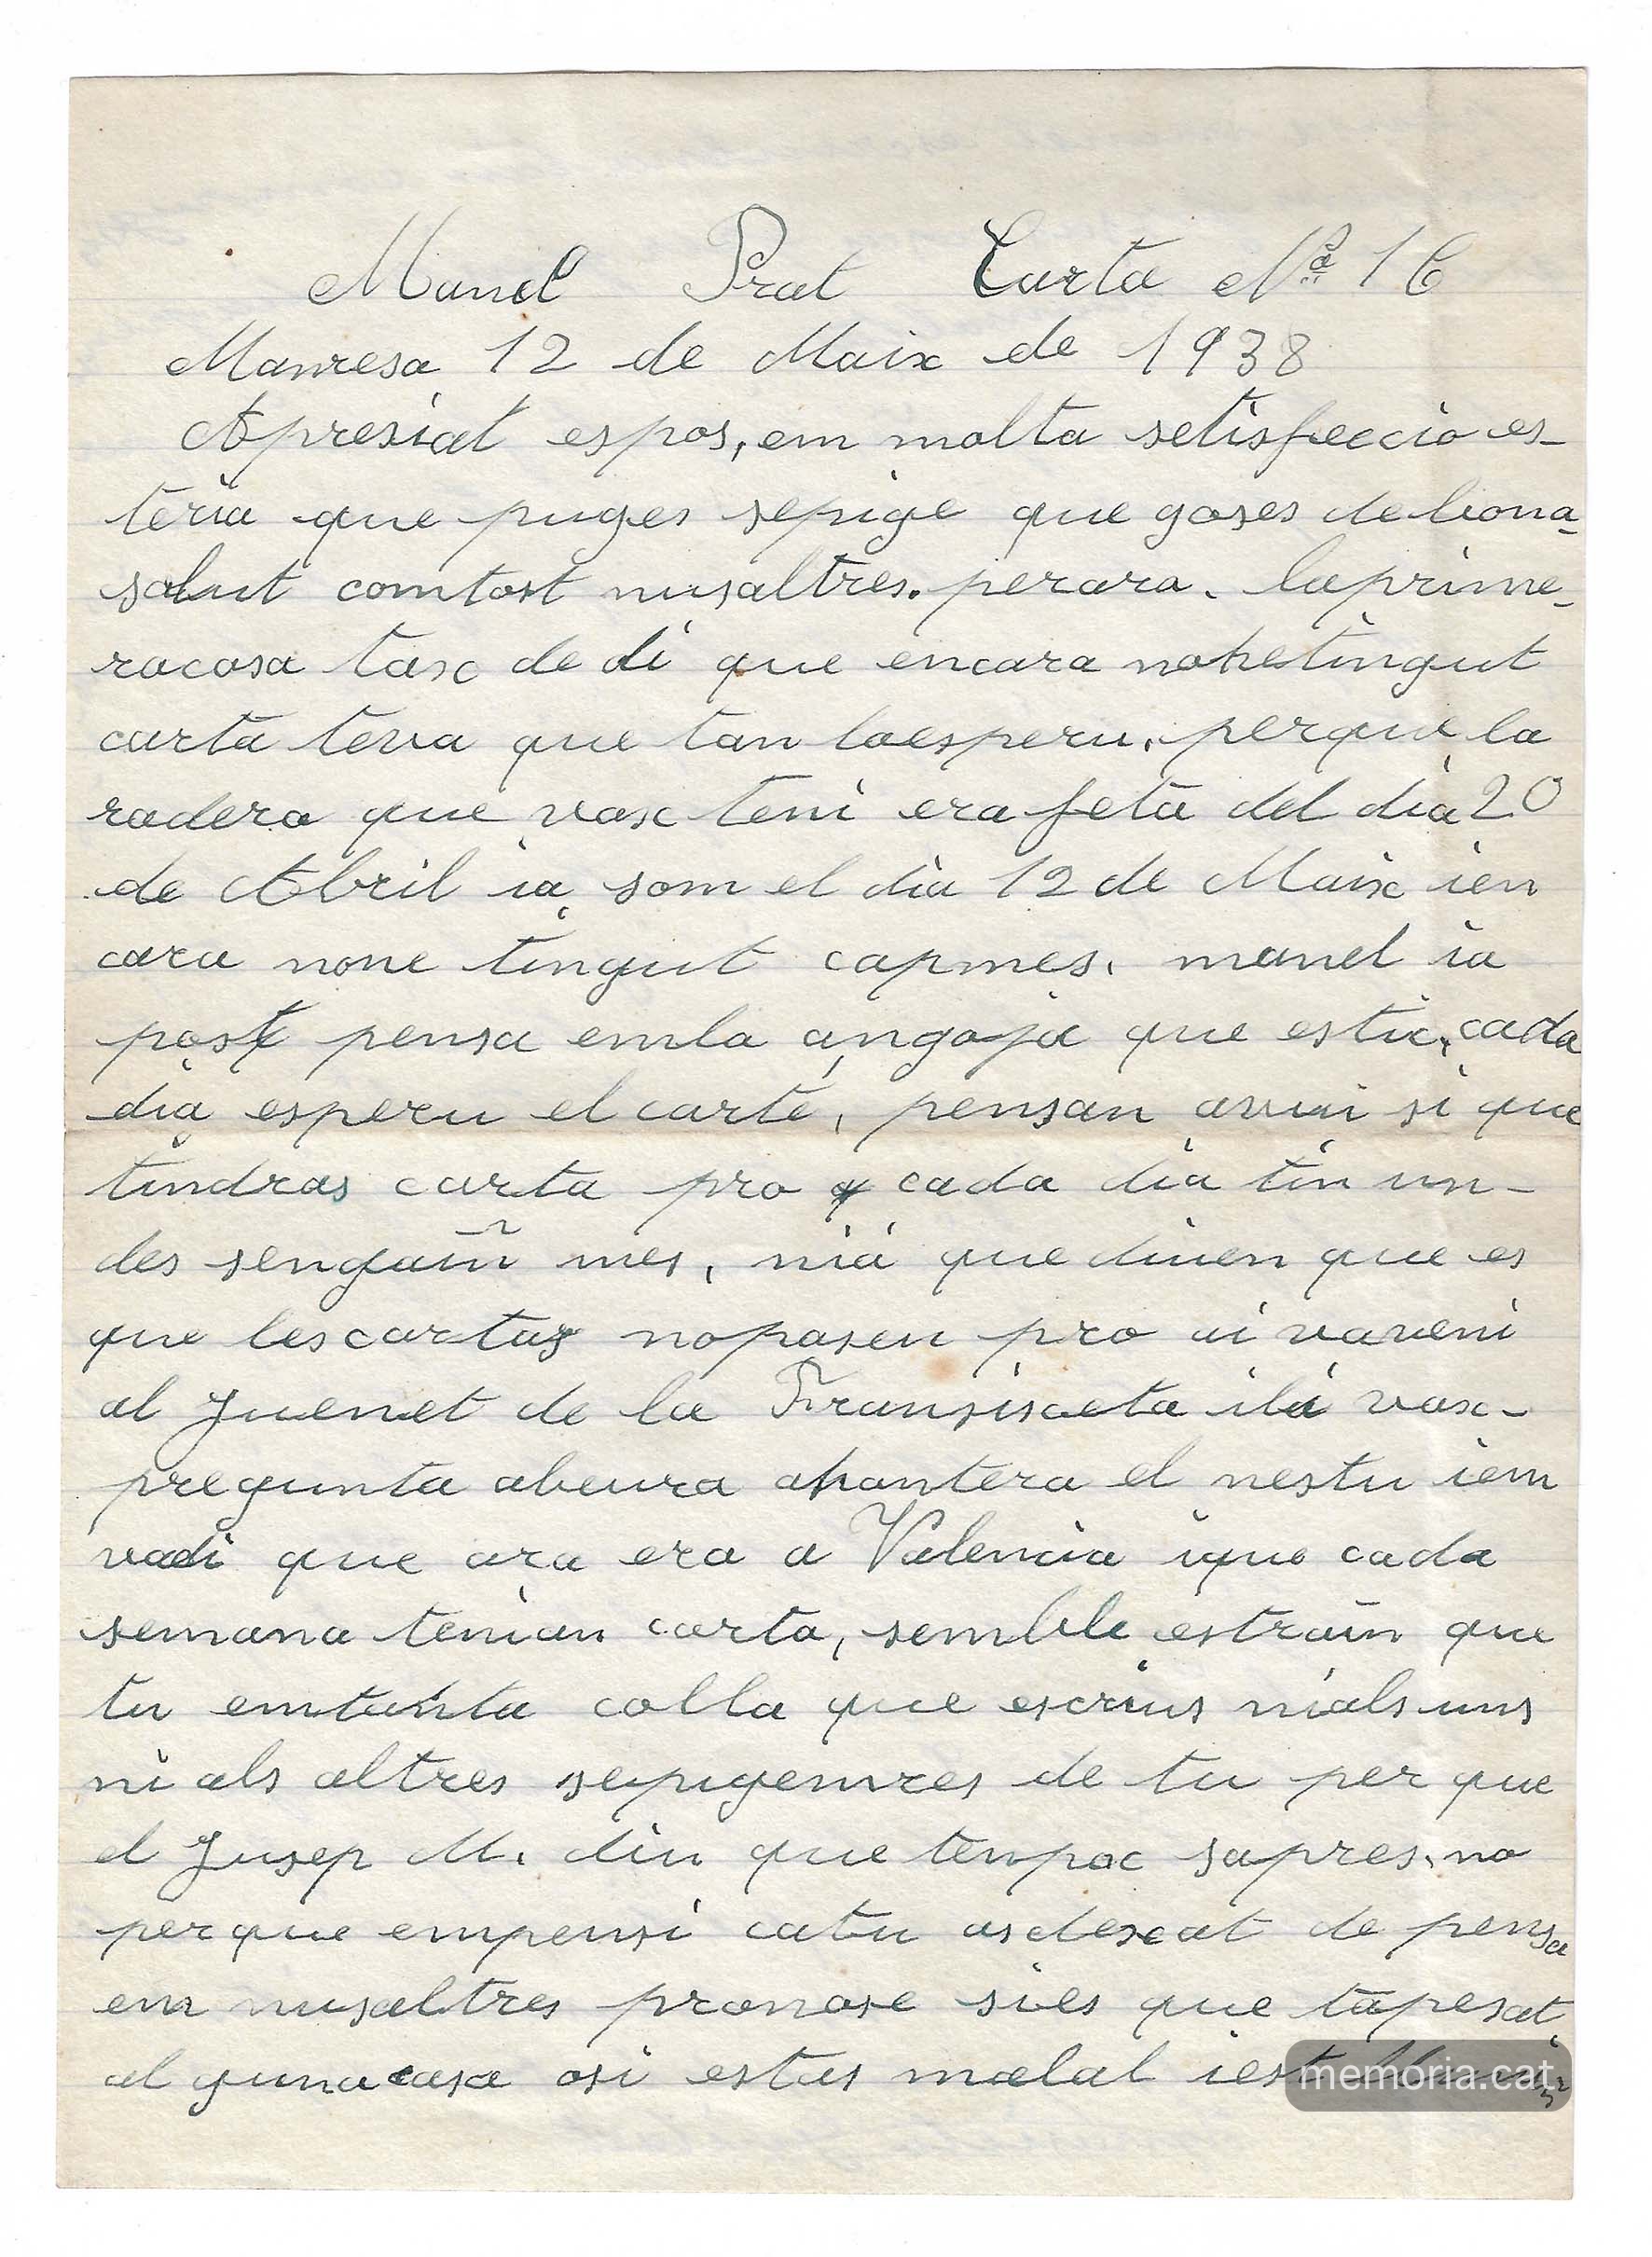 Manel Prat Carta Nª 16
Manresa 12 de Maix de 1938
Apresiat espos, em molta setisfeecio es-
teria que puges sepige que goses de bona
salut comtost nusaltres. perara. laprime-
racosa tasc de di que encara nohetingut
carta teva que tan laesperu, perque la
radera que vasc teni era feta del dia 20
de Abril ia som el dia 12 de Maix ien
cara none tingut capmes. manel ia
post pensa emla angoja que estic, cada
dia esperu el carté, pensan avui si que
tindras carta pro cada dia tin un-
des sengañ mes, nia que diuen que es
que les cartas nopasen pro ai vaveni
al Juenet de la Fransisceta ili vasc-
pregunta abeura ahontera el nestu iem
vadi que ara era a Valencia ique cada
semana tenian carta, semble estrañ que
tu emtanta colla que escrius nials uns
ni als altres sepigemres de tu per que
el Jusep M. diu que tenpoc sapres, no
perque empensi catu as dexat de pensa
em nusaltres pronose sies que tapesat
al guna casa osi estas malal iest
memoria.cat